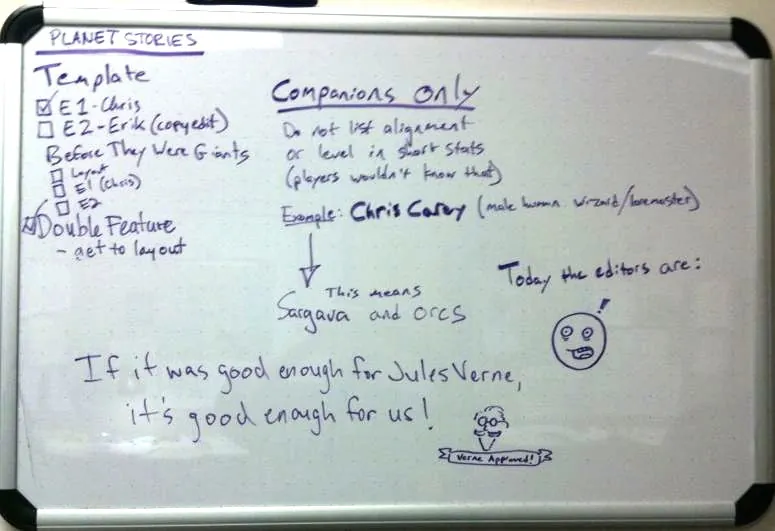 PLANET STORIES
Template
E1-Chris
E2-Erik (copyedit)
Before They Were Giants
Layout
E1 (Chris)
E2
Double Feature
- get to layout
Companions Only
Do not list alignment
or level in short stats
(players wouldn't know that)
Example: Chris Carey (male human wizard/loremaster)
This means
Sargava and orcs
Today the editors are:
!
If it was good enough for Jules Verne,
it's good enough for us!
Verne Approved!